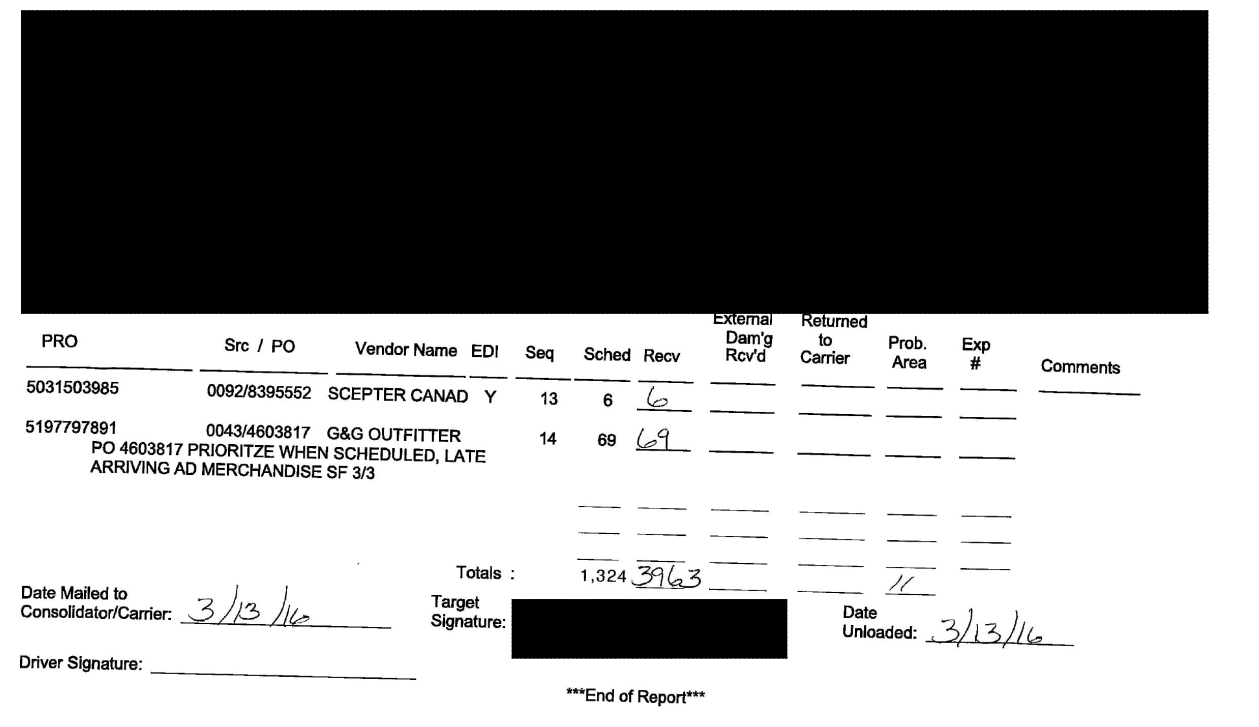 External Returned
PRO Src / PO Vendor Name EDI Seq Sched Recv Dam'g to Prob. Exp
Rcv'd Carrier Area # Comments
5031503985 0092/8395552 SCEPTER CANAD Y 13 6 6
5197797891 0043/4603817 G&G OUTFITTER 14 69 69
PO 4603817 PRIORITZE WHEN SCHEDULED, LATE
ARRIVING AD MERCHANDISE SF 3/3
Totals : 1,324 3963 11
Date Mailed to
Consolidator/Carrier: 3/13/16
Target
Signature:
Date
Unloaded: 3/13/16
Driver Signature:
***End of Report***